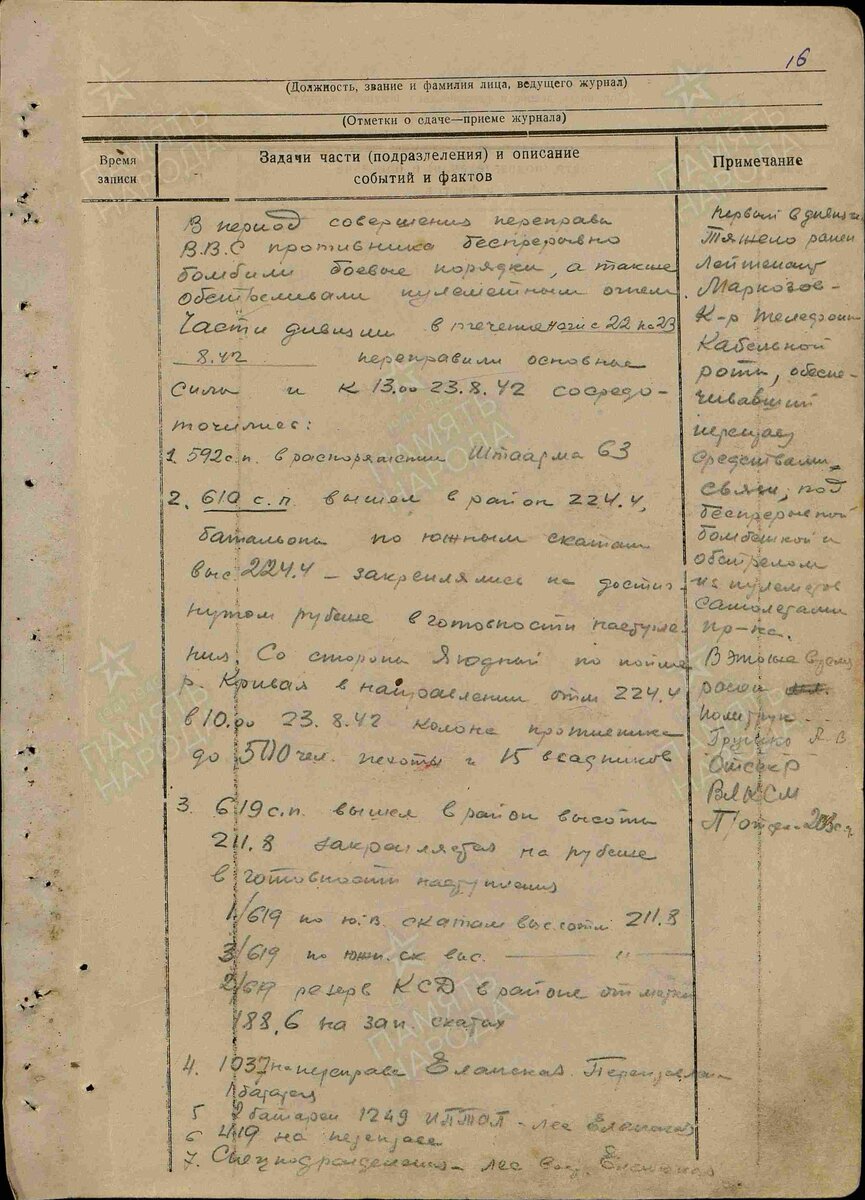 16
(Должность, звание и фамилия лица, ведущего журнал)
(Отметки о сдаче—приеме журнала)
Время записи
Задачи части (подразделения) и описание
событий и фактов
Примечание
В период совершения переправы
В.В.С противника беспрерывно
бомбили боевые порядки, а также
обстреливали пулеметным огнем
Части дивизии в течение ночи с 22 на 23
8.42 переправили основные
силы и к 13.00 23.8.42 сосредо-
точились:
1. 592 с.п. в распоряжении Штаарма 63
2. 610 с.п. вышел в район 224.4,
батальоны по южным скатам
выс. 224.4 – закреплялись на достиг-
нутом рубеже в готовности наступле-
ния. Со стороны Ягодный по пойме
р. Кривая в направлении отм 224.4
в 10.00 23.8.42 колона противника
до 500 чел. пехоты и 15 всадников
3. 619 с.п. вышел в район высоты
211.8 закрепляется на рубеже
в готовности наступления
1/619 по ю.в. скатам высоты 211.8
3/619 по южн. ск выс. —— " ——
2/619 резерв КСД в районе отметки
188,6 на зап. скатах
4. 1037 на переправе Еланская.
1 батарея
5 2 батареи 1249 ИПТАП - лес Еланская
6 419 на
7. Спецподразделения – лес Еланская
первый в дивизии
Тяжело ранен
лейтенант
Маркозов –
К-р телефонно
Кабельной
роты, обеспе-
чивавший
переправу
средствами
связи, под
беспрерывной
бомбежкой и
обстрелом
из пулеметов
самолетами
пр-ка.
В это же время
ранен
политрук
Грушко А.В
Отсекр
ВЛКСМ
П/отдел 203 с.
ПАМЯТЬ
НАРОДА
ПАМЯТЬ
НАРОДА
ПАМЯТЬ
НАРОДА
ПАМЯТЬ
НАРОДА
ПАМЯТЬ
НАРОДА
ПАМЯТЬ
НАРОДА